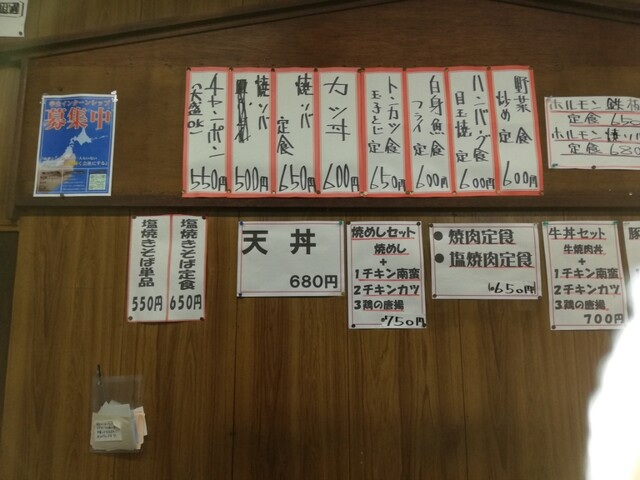 学生インターンシップ
募集中
チャンポン
(大盛OK)
550円
焼ソバ
500円
焼ソバ
定食
650円
カツ丼
600円
トンカツ定食
玉子とじ定
650円
白身魚定食
フライ
600円
ハンバーグ定食
目玉焼
600円
野菜
炒め定食
600円
ホルモン鉄板
定食 650
ホルモン焼ソバ
定食 680
塩焼きそば定食
650円
塩焼きそば単品
550円
天丼
680円
焼めしセット
焼めし
+
1チキン南蛮
2チキンカツ
3鶏の唐揚
750円
●焼肉定食
●塩焼肉定食
650円
牛丼セット
牛焼肉丼
+
1チキン南蛮
2チキンカツ
3鶏の唐揚
700円
豚